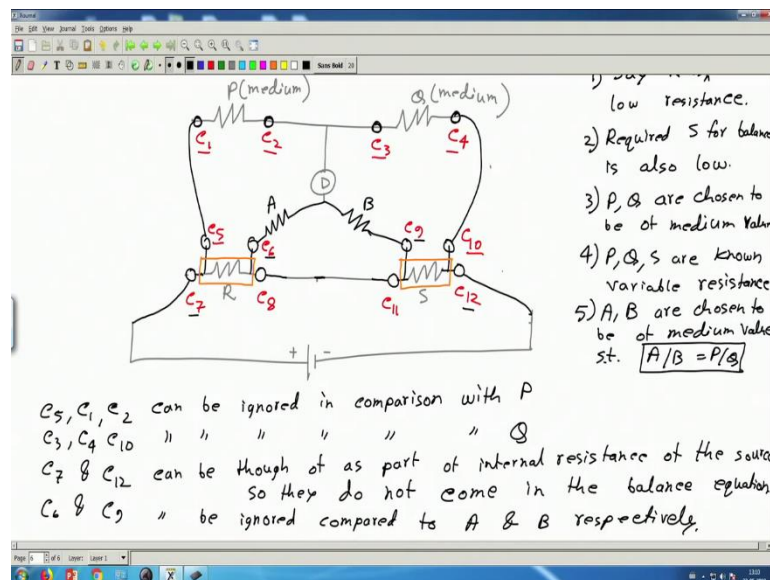 Journal
File Edit View Journal Tools Options Help
Sans Bold 20
P(medium)
Q(medium)
C1
C2
C3
C4
D
A
B
C5
C6
C9
C10
R
S
C7
C8
C11
C12
+ -
low resistance.
2) Required S for balance
is also low.
3) P, Q are chosen to
be of medium value
4) P, Q, S are known
variable resistance
5) A, B are chosen to
be of medium value
s.t. A/B = P/Q
C5, C1, C2 can be ignored in comparison with P
C3, C4 C10 〃 〃 〃 〃 〃 〃 Q
C7 & C12 can be though of as part of internal resistance of the source
so they do not come in the balance equation
C6 & C9 〃 be ignored compared to A & B respectively.
Page 6 of 6 Layer: Layer 1
13:03